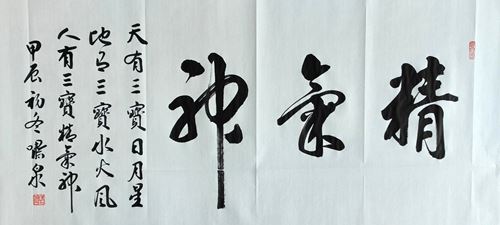 精氣神
天有三寶日月星
地有三寶水火風
人有三寶精氣神
甲辰初冬泉